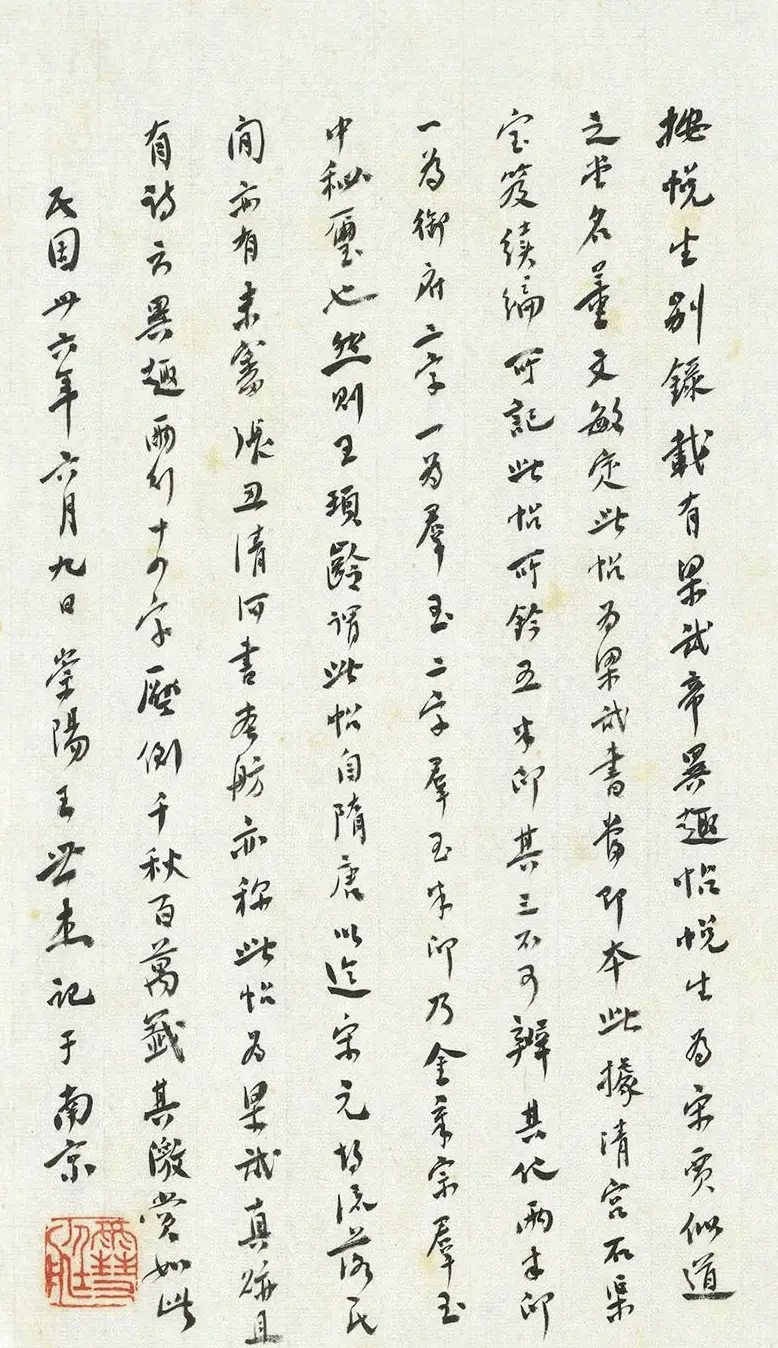 按悅生别錄載有梁武帝異趣帖悅生為宋賈似道
之堂名董文敏定此帖為梁武書當即本此據清宮石渠
宝笈續編所記此帖所鈐五朱印其三不可辨其他兩朱印
一為御府二字一為羣玉二字羣玉朱印乃金章宗羣玉
中秘璽也然則王頊齡謂此帖自隋唐以迄宋元均流落民
間亦有未審張丑清河書畫舫亦称此帖為梁武真跡且
有詩云異趣兩行十四字壓倒千秋百萬籤其激賞如此
民國卅六年六月九日崇陽王世杰記于南京